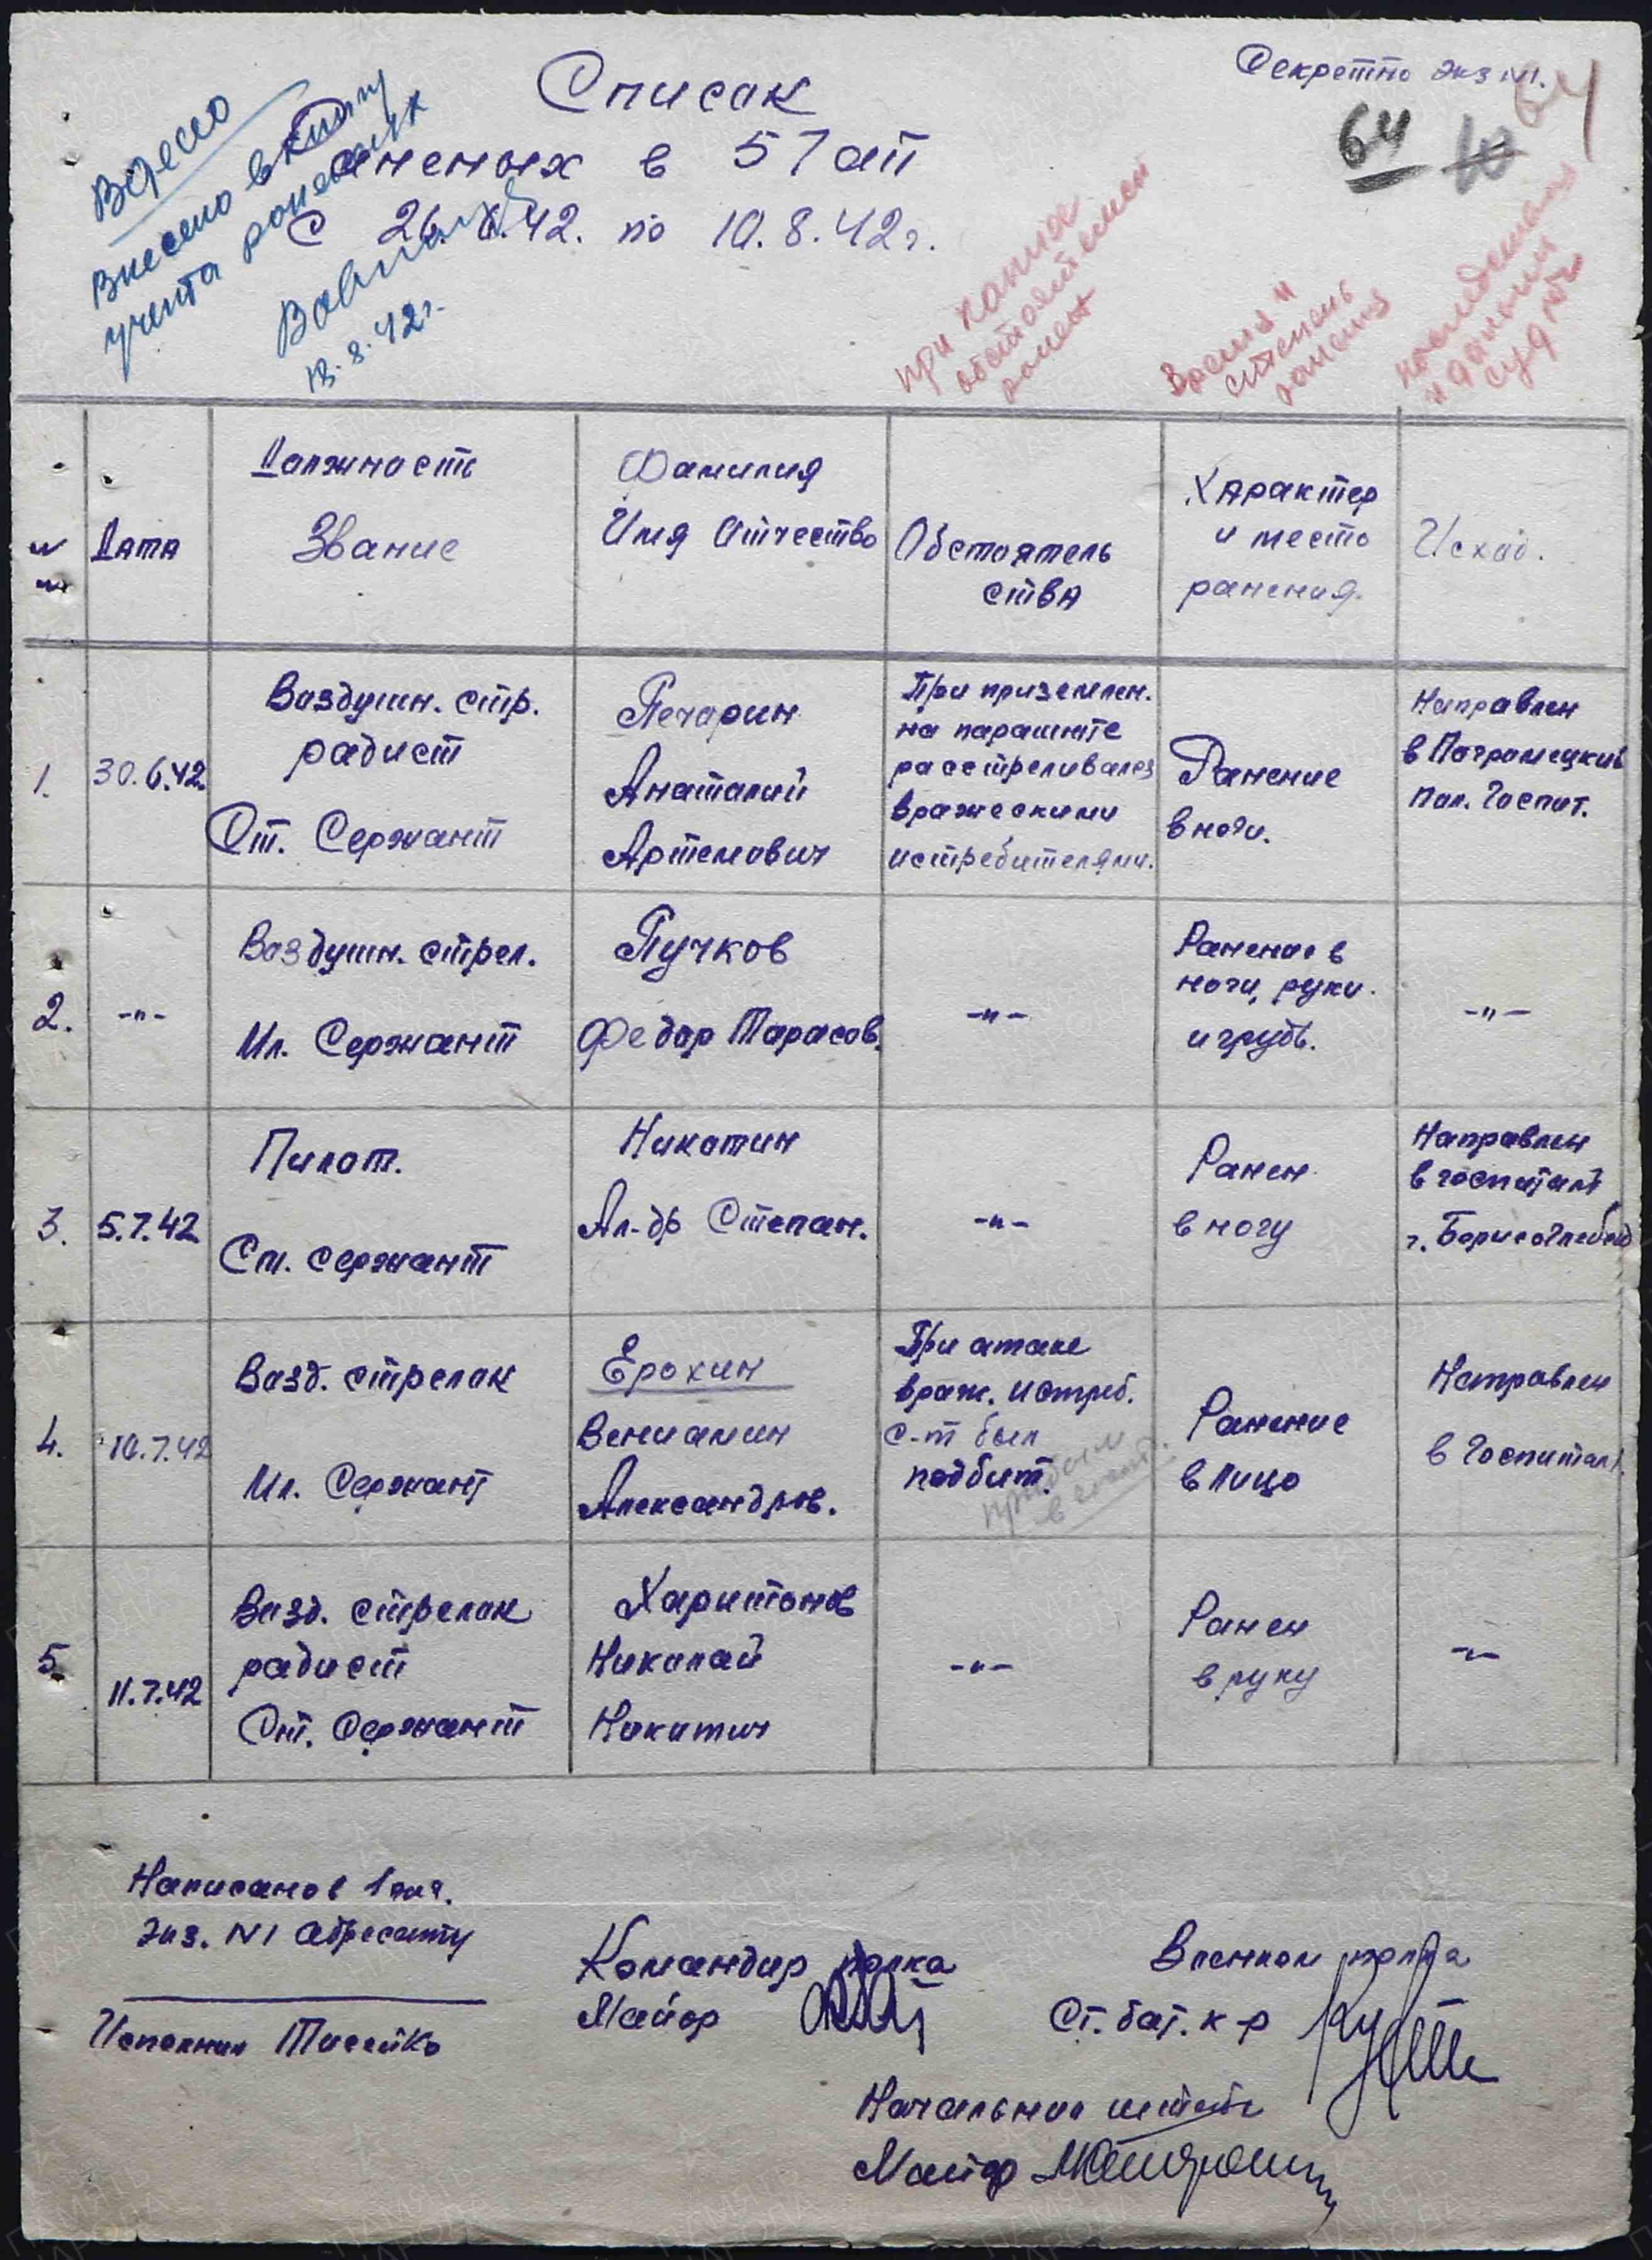 Секретно экз №1.
64
64
10
Список
раненых в 57 ап
с 26.6.42. по 10.8.42г.
Внесено в книгу
учета раненых
18.8.42г.
при каких
обстоятельствах
ранен
Время и
степень
ранения
Дата
Должность
Звание
Фамилия
Имя Отчество
Обстоятель
ства
Характер
и место
ранения.
Исход.
1.
30.6.42.
Воздушн. стр.
радист
Ст. Сержант
Печорин
Анатолий
Артемович
При приземлен.
на парашюте
расстреливался
вражескими
истребителями.
Ранение
в ноги.
Направлен
в Погромецкий
пол. госпит.
2.
-"-
Воздушн. стрел.
Мл. Сержант
Пучков
Федор Тарасов.
-"-
Ранение в
ноги, руки.
и грудь.
-"-
3.
5.7.42
Пилот.
Ст. сержант
Никотин
Ал-др Степан.
-"-
Ранен
в ногу
Направлен
в госпиталь
г. Борисоглебск
4.
10.7.42
Возд. стрелок
Мл. Сержант
Ерохин
Вениамин
Александров.
При атаке
враж. истреб.
с-т был
подбит.
Ранение
в лицо
Направлен
в госпиталь.
5.
11.7.42
Возд. стрелок
радист
Ст. Сержант
Харитонов
Николай
Никитич
-"-
Ранен
в руку
-"-
Написано в 1 экз.
Экз. №1 адресату
Исполнил
Командир полка
Майор
Военком полка
Ст. бат. к-р
Начальник штаба
Майор